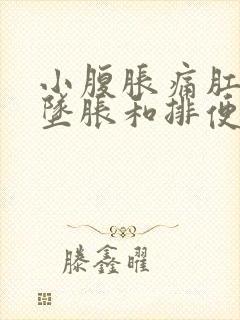 小腹胀痛肛
墜胀和排便
滕鑫曜